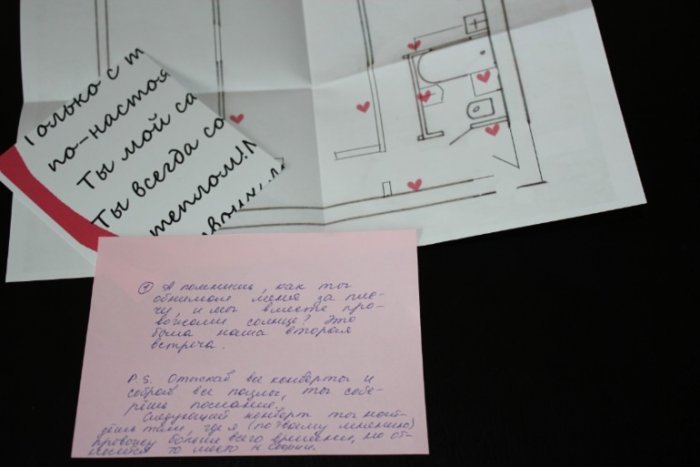 Только с т
по-настоя
Ты мой са
Ты всегда со
теплом! Л
А помнишь, как ты
обнимала меня за пле-
чу, и мы вместе про-
вожали солнце? Это
была наша вторая
встреча.
P.S. Отыскав все конверты и
собрав все пазлы, ты собе-
рёшь послание.
Следующий конверт ты най-
дёшь там, где я (по твоему мнению)
провожу больше всего времени, но от-
место к